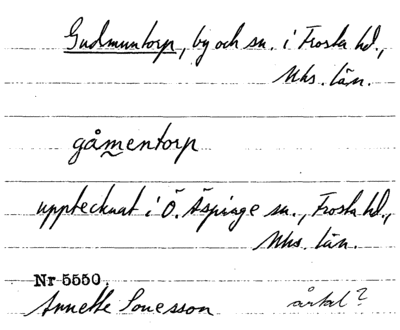 Gudmuntorp, by och sn. i Frosta hd.,
Mhs. län.
gåmentorp
upptecknat i Ö. Äspinge sn., Frosta hd.,
Mhs. län.
Nr 5550.
Annette Sonesson årtal?